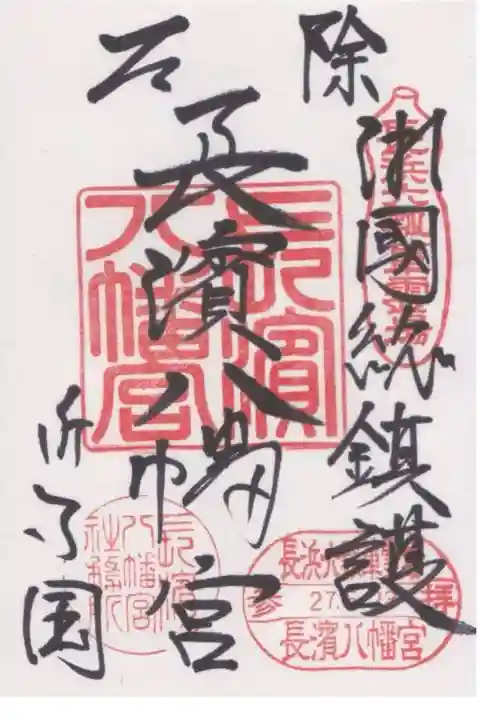 除
國総鎮護
長濱八幡宮
近江国
長濱八幡宮
長濱八幡宮社務所
長浜
参 27. 拝
長濱八幡宮